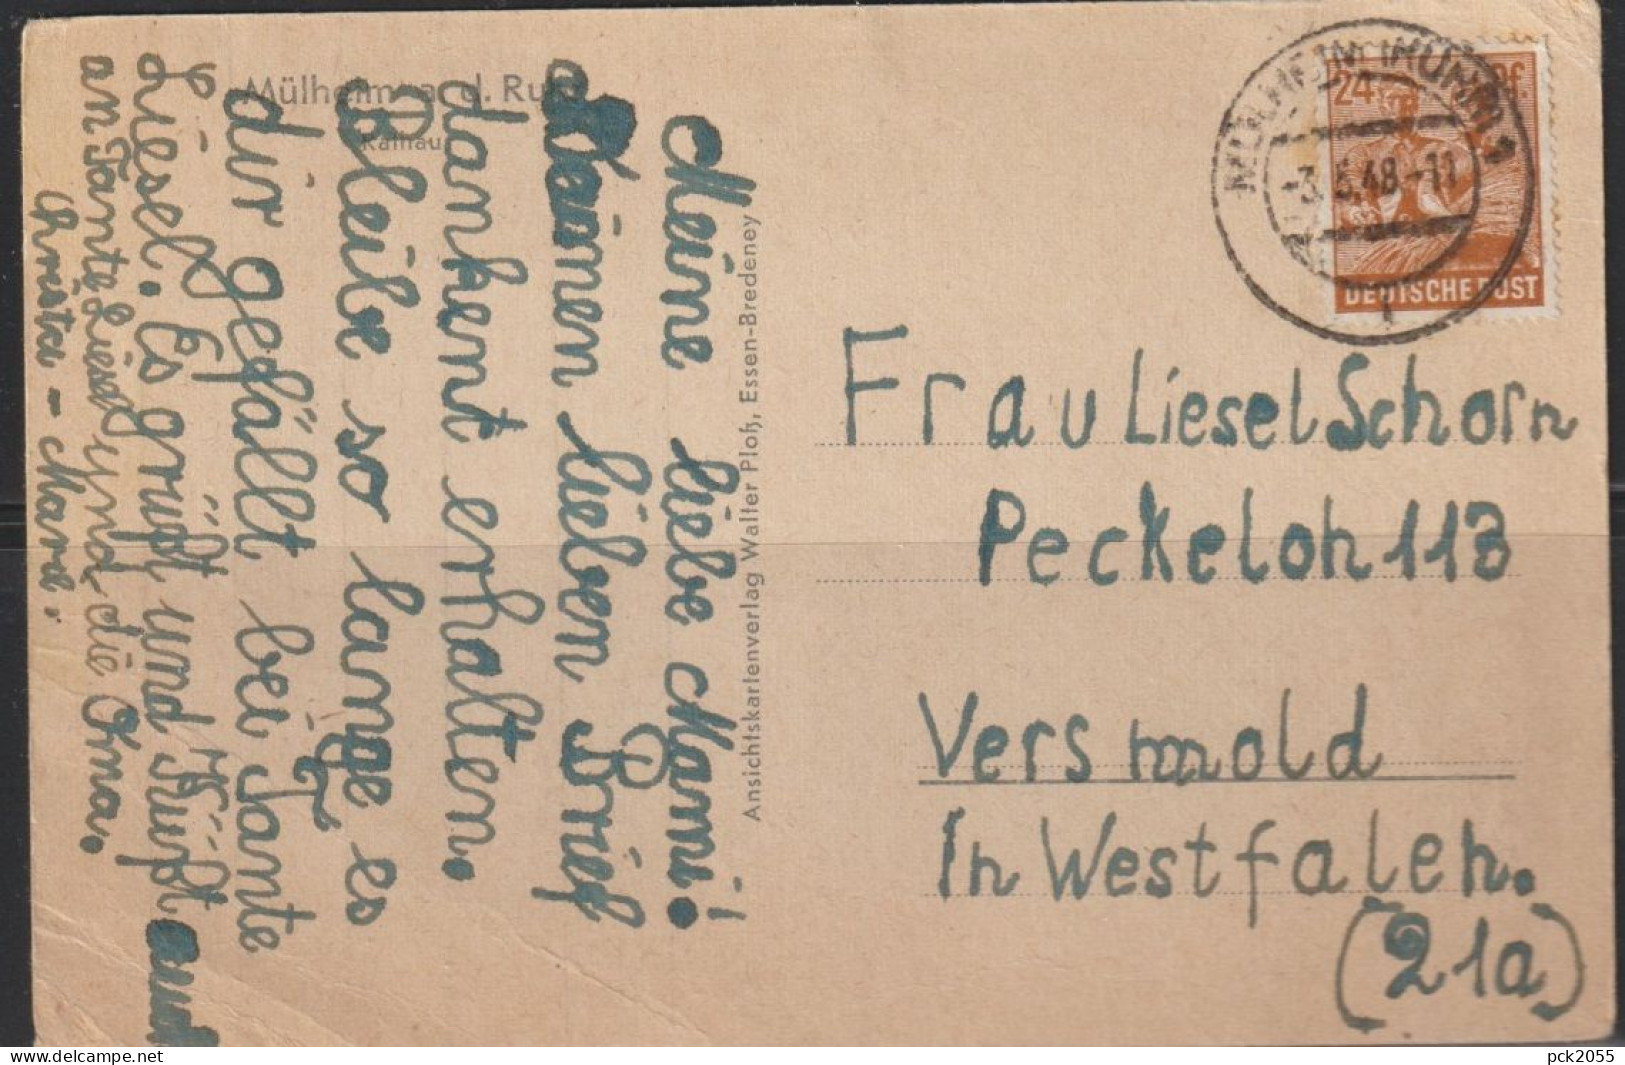 Mülheim a. d. Ruhr
Rathaus
Meine liebe Mami!
Deinen lieben Brief
dankent erhalten.
Bleibe so lange es
dir gefällt bei Tante
Liesel. Es grüßt und Küßt
an Tante Liesel und die Oma.
Christa - Mard.
Ansichtskartenverlag Walter Ploß, Essen-Bredeney
MÜLHEIM (RUHR) 1
-3.5.48-11
24 Pf.
DEUTSCHE POST
Frau Liesel Schorn
Peckeloh 113
Versmold
In Westfalen.
(21a)
delcampe.net
pck2055